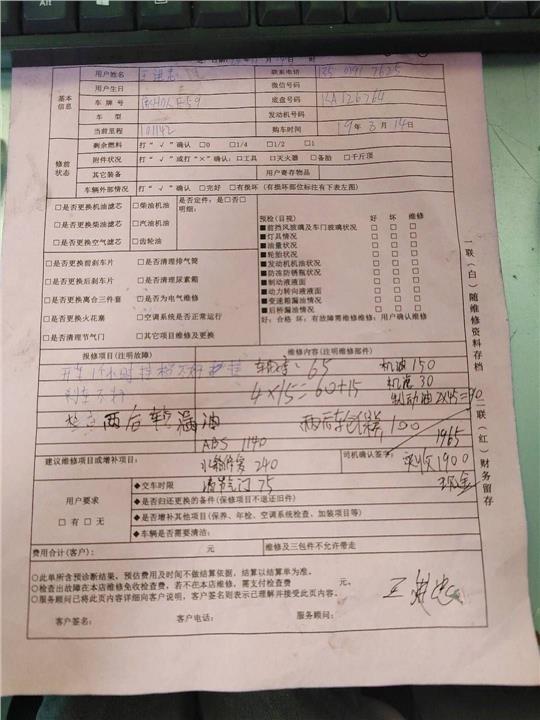 用户姓名 联系电话 135 0191 7625
用户生日 微信号码
基本信息
车 牌 号 底盘号码 KA126764
车 型 发动机号码
当前里程 101142 购车时间 19年3月14日
修前状态
剩余燃料 打“√”确认 □0 □1/4 □1/2 □1
附件状况 打“√”或打“×”确认:□工具 □灭火器 □备胎 □千斤顶
其它装备 用户寄存物品
车辆外部情况 打“√”确认 □完好 □有损坏(有损坏部位标注有下表左图)
□是否更换机油滤芯 □柴油机油 是否定件:是□否□
明细:
□是否更换柴油滤芯 □汽油机油
□是否更换空气滤芯 □齿轮油
预检(目视) 好 坏 维修
■前挡风玻璃及车门玻璃状况 □ □ □
■灯具情况 □ □ □
■油量状况 □ □ □
■轮胎状况 □ □ □
■发动机机油状况 □ □ □
■防冻防锈瓶状况 □ □ □
■制动液液面 □ □ □
■动力转向液液面 □ □ □
■变速箱漏油情况 □ □ □
■后桥漏油情况 □ □ □
好:合格 坏:有故障需维修维修:用户确认维修
□是否更换前刹车片 □是否清理排气筒
□是否更换后刹车片 □是否清理尿素箱
□是否更换离合三件套 □是否为电气维修
□是否更换火花塞 □空调系统是否正常运行
□是否清理节气门 □其它项目维修及更换
报修项目(注明故障) 维修内容(注明维修部件)
65 机油 150
4×15=60+15 机滤 30
制动油 2×45=90
两后轮漏油 100
1965
ABS 1140
建议维修项目或增补项目: 240 司机确认签字: 实收1900
现金
用户要求
□有 □无
◆交车时限 清节气门 75
◆是否归还更换的备件(保修项目不退还旧件)
◆是否增补其他项目(保养、年检、空调系统检查、加装项目等)
◆车辆是否需要清洁:
费用合计(客户): 元 维修及三包件不允许带走
○此单所含预诊断结果、预估费用及时间不做结算依据,结算以结算单为准。
○检查出故障在本店维修免收检查费,若不在本店维修,需支付检查费 元。
○服务顾问已将此页内容详细向客户说明,客户签名则表示已理解并接受此页内容。
客户签名: 客户电话: 服务顾问:
一联(白)随维修资料存档
二联(红)财务留存